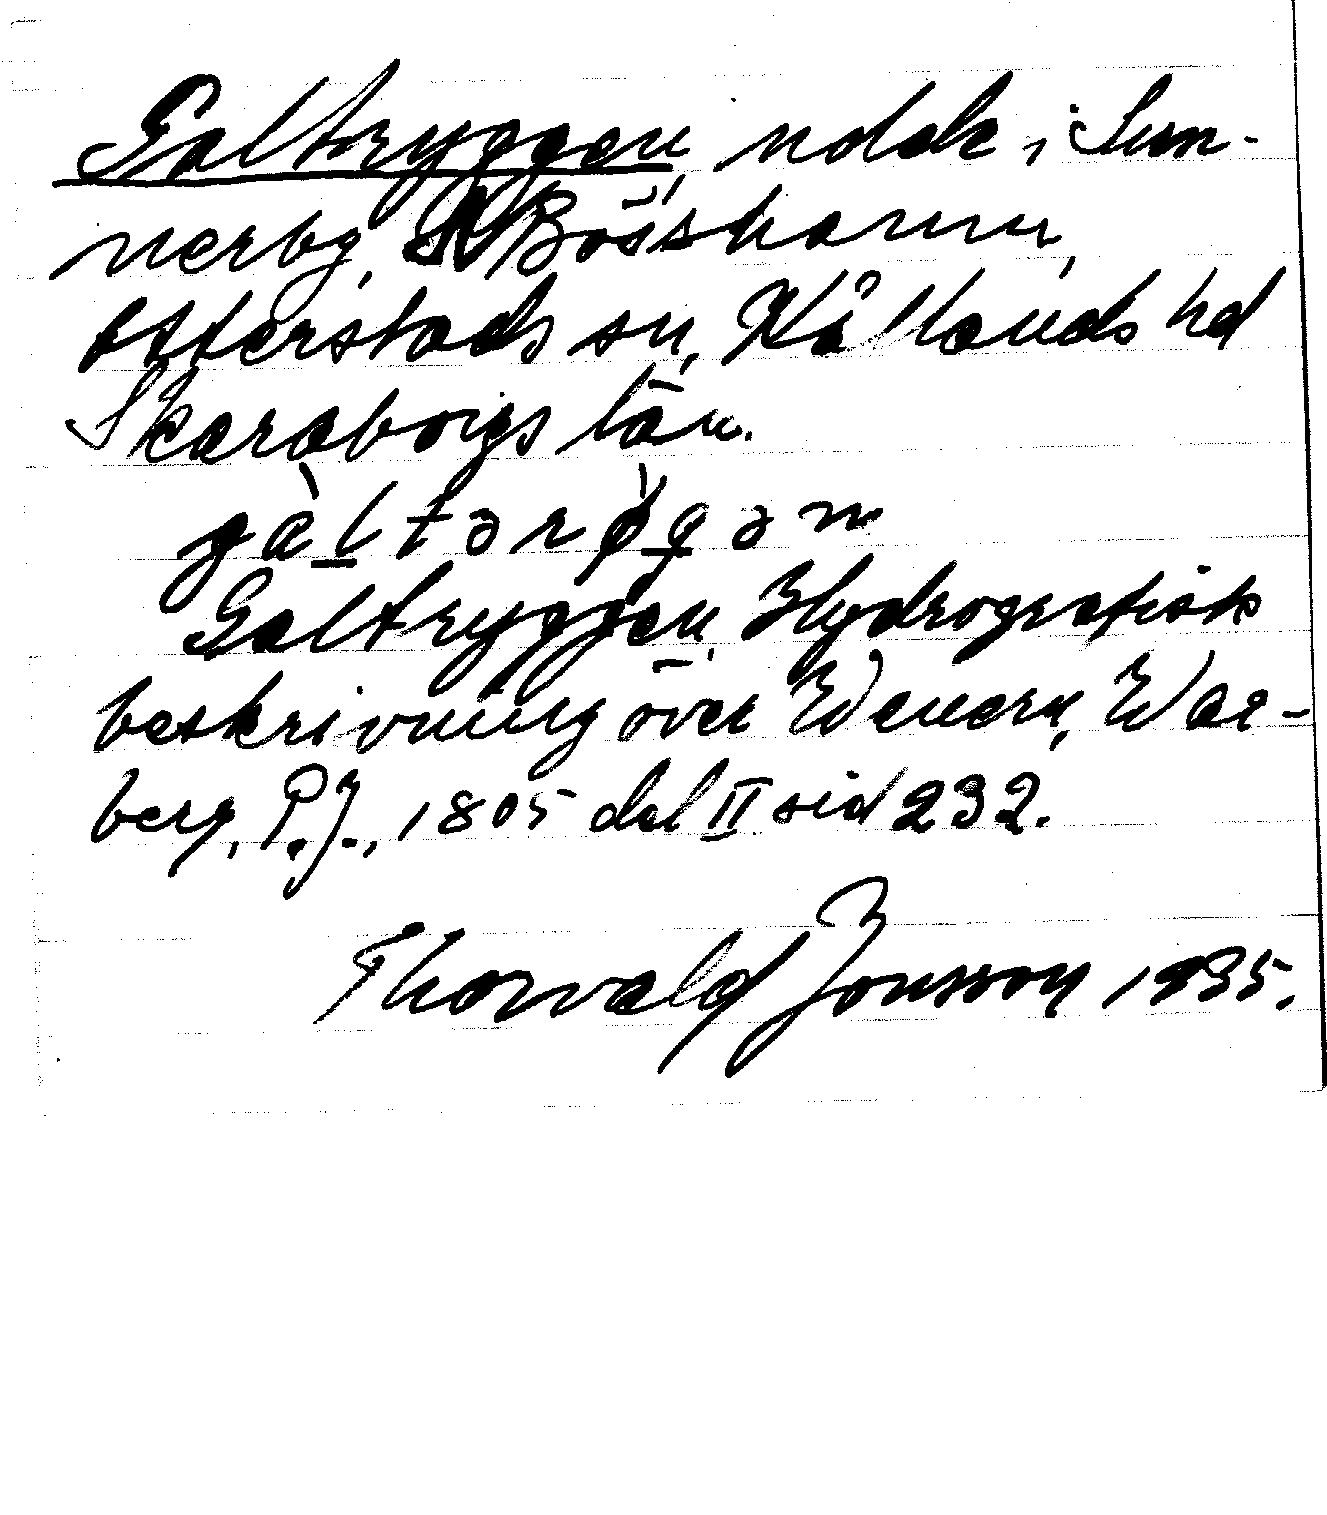 Galtryggen, udde i Sun-
nerby, Bösshamn,
Otterstads sn, Kållands hd
Skaraborgs län.
gàltərø̀gən
Galtryggen, Hydrografisk
beskrivning över Wenern, War-
berg, P.J., 1805 del II sid 232.
Thorvald Jonsson 1935.